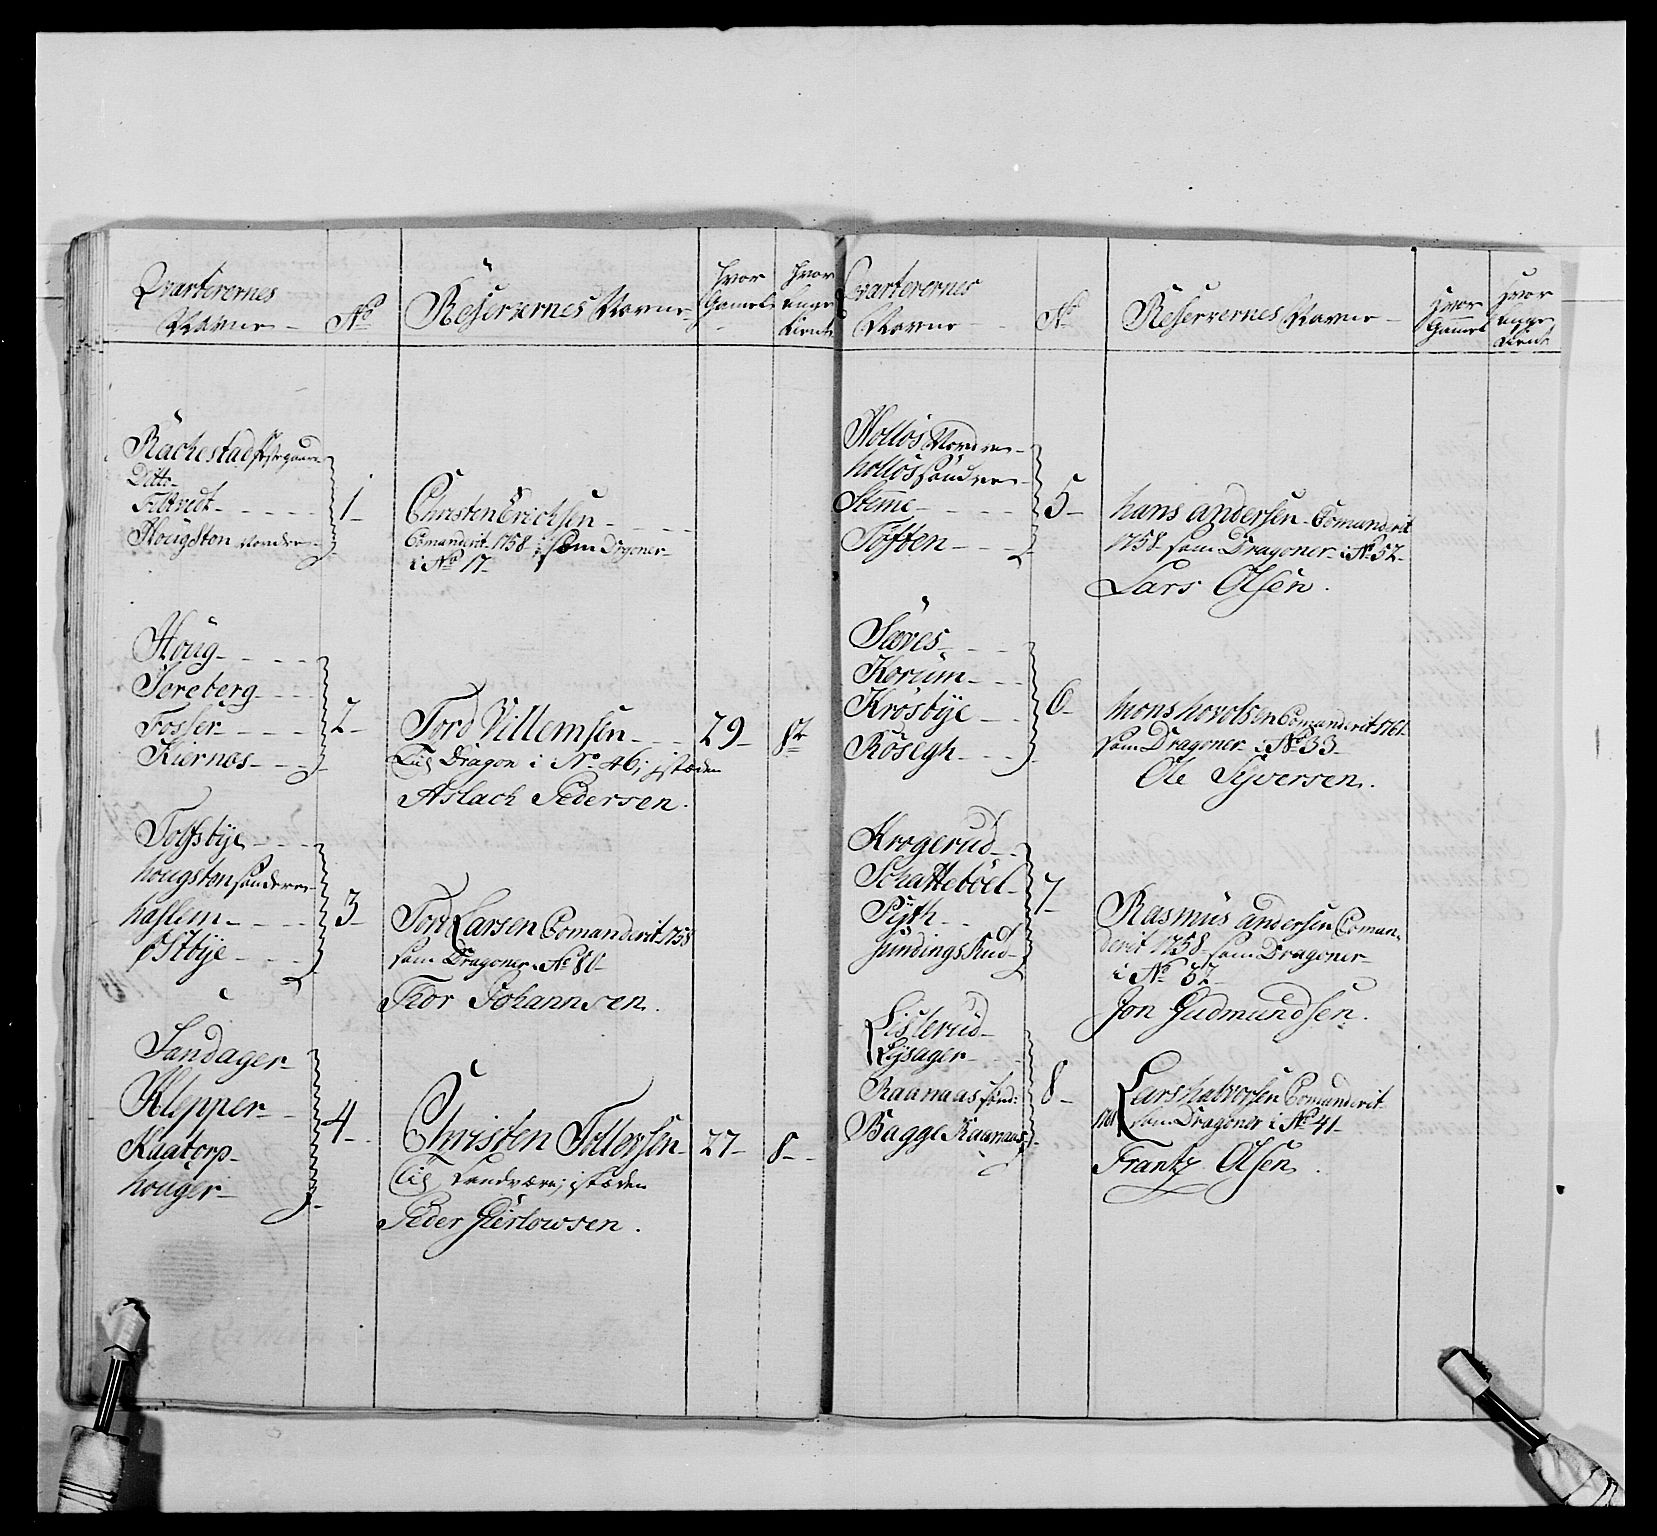 Qvarterernes
Navne
No
Reservernes Navne
Hvor
Gamel
Hvor
længe
tient
Rachestad
Ditto
Tiltvedt
Hougston Nordre
1
Christen Erichsen
Comanderit 1758 som Dragoner
i No 17
Houg
Soreberg
Fosser
Kiernos
2
Tord Villemsen
29
8
Til Dragon i No 46, i stæden
Aslach Pedersen.
Tolfsbye
hougston søndere
haslem
østbye
3
Tord Larsen Comanderit 1758
som Dragoner i No 80
Thor Johannsen.
Sandager
Klepper
Kaatorp
houger
4
Christen Tollevsen
27
8
til Landværn, i stæden
Peder Giertowsen.
Qvarterernes
Navne
No
Reservernes Navne
Hvor
Gamel
Hvor
længe
tient
Holløs Nordre
holløs søndre
Steme
Toften
5
hans andersen Comanderit
1758 som Dragoner i No 52
Lars Olsen.
Sæves
Korum
Krosbye
Rösegh
6
mons hovelsen Comanderit 1761
som Dragoner i No 33
Ole Syversen.
Krogerud
Schatteböel
Pyth
7
Rasmus andersen Coman-
derit 1758 som Dragoner
i No 57
Jon Gudmundsen.
Listerud
Lysager
Raanaas sønd:
Bagge Raanaas
8
Lars halvorsen Comanderit
1761 som Dragoner i No 41
Frantz Olsen.